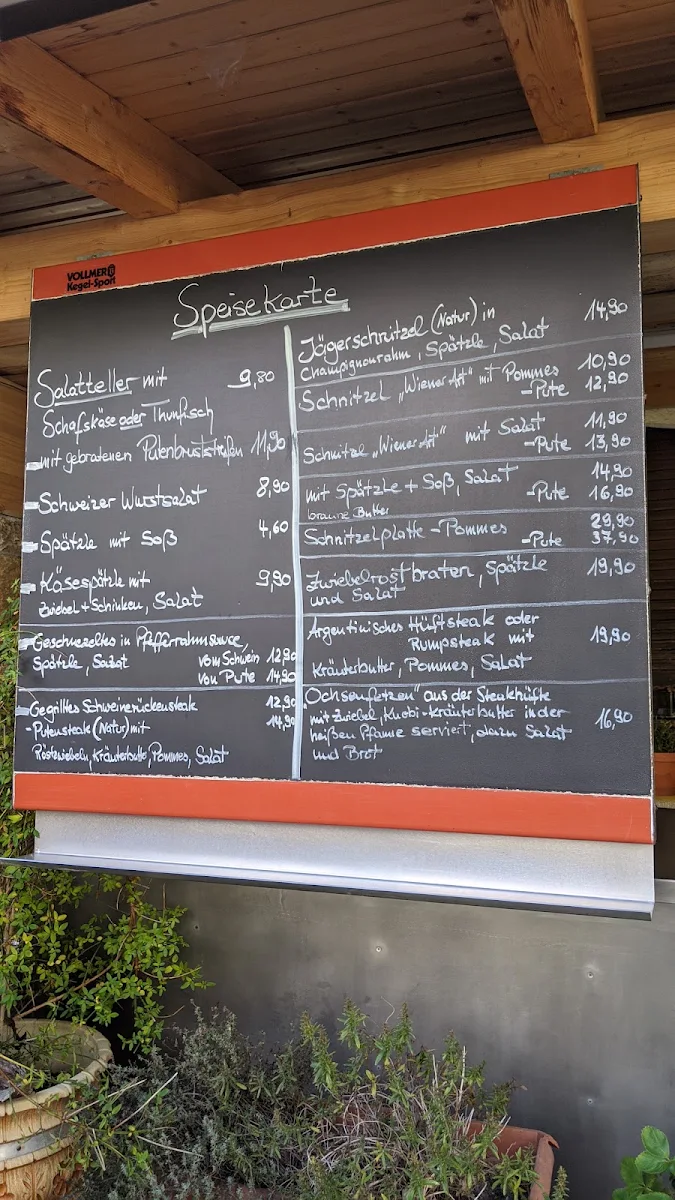 VOLLMER
Kegel-Sport
Speisekarte
Salatteller mit 9,80
Schafskäse oder Thunfisch
- mit gebratenen Putenbruststreifen 11,90
- Schweizer Wurstsalat 8,90
- Spätzle mit Soß 4,60
- Käsespätzle mit 9,90
Zwiebel + Schinken, Salat
- Geschnezeltes in Pfefferrahmsauce,
Spätzle, Salat vom Schwein 12,90
von Pute 14,90
- Gegrilltes Schweinerückensteak 12,90
- Putensteak (Natur) mit 14,90
Röstzwiebeln, Kräuterbutter, Pommes, Salat
Jägerschnitzel (Natur) in 14,90
Champignonrahm, Spätzle, Salat
Schnitzel „Wiener Art" mit Pommes 10,90
- Pute 12,90
Schnitzel „Wiener Art" mit Salat 11,90
- Pute 13,90
mit Spätzle + Soß, Salat 14,90
braune Butter - Pute 16,90
Schnitzelplatte - Pommes 29,90
- Pute 37,90
Zwiebelrostbraten, Spätzle 19,90
und Salat
Argentinisches Hüftsteak oder
Rumpsteak mit 19,90
Kräuterbutter, Pommes, Salat
„Ochsenfetzen" aus der Steakhüfte
mit Zwiebel, Knobi-Kräuterbutter in der 16,90
heißen Pfanne serviert, dazu Salat
und Brot